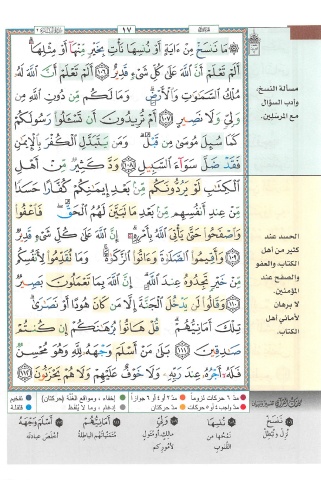 ١٧
مَا نَنسَخْ مِنْ ءَايَةٍ أَوْ نُنسِهَا نَأْتِ بِخَيْرٍ مِّنْهَآ أَوْ مِثْلِهَآ
أَلَمْ تَعْلَمْ أَنَّ ٱللَّهَ عَلَىٰ كُلِّ شَىْءٍ قَدِيرٌ ١٠٦ أَلَمْ تَعْلَمْ أَنَّ ٱللَّهَ لَهُۥ
مُلْكُ ٱلسَّمَٰوَٰتِ وَٱلْأَرْضِ وَمَا لَكُم مِّن دُونِ ٱللَّهِ مِن
وَلِىٍّ وَلَا نَصِيرٍ ١٠٧ أَمْ تُرِيدُونَ أَن تَسْـَٔلُوا۟ رَسُولَكُمْ
كَمَا سُئِلَ مُوسَىٰ مِن قَبْلُ وَمَن يَتَبَدَّلِ ٱلْكُفْرَ بِٱلْإِيمَٰنِ
فَقَدْ ضَلَّ سَوَآءَ ٱلسَّبِيلِ ١٠٨ وَدَّ كَثِيرٌ مِّنْ أَهْلِ
ٱلْكِتَٰبِ لَوْ يَرُدُّونَكُم مِّنۢ بَعْدِ إِيمَٰنِكُمْ كُفَّارًا حَسَدًا
مِّنْ عِندِ أَنفُسِهِم مِّنۢ بَعْدِ مَا تَبَيَّنَ لَهُمُ ٱلْحَقُّ فَٱعْفُوا۟
وَٱصْفَحُوا۟ حَتَّىٰ يَأْتِىَ ٱللَّهُ بِأَمْرِهِۦٓ إِنَّ ٱللَّهَ عَلَىٰ كُلِّ شَىْءٍ قَدِيرٌ
١٠٩ وَأَقِيمُوا۟ ٱلصَّلَوٰةَ وَءَاتُوا۟ ٱلزَّكَوٰةَ وَمَا تُقَدِّمُوا۟ لِأَنفُسِكُم
مِّنْ خَيْرٍ تَجِدُوهُ عِندَ ٱللَّهِ إِنَّ ٱللَّهَ بِمَا تَعْمَلُونَ بَصِيرٌ
١١٠ وَقَالُوا۟ لَن يَدْخُلَ ٱلْجَنَّةَ إِلَّا مَن كَانَ هُودًا أَوْ نَصَٰرَىٰ
تِلْكَ أَمَانِيُّهُمْ قُلْ هَاتُوا۟ بُرْهَٰنَكُمْ إِن كُنتُمْ
صَٰدِقِينَ ١١١ بَلَىٰ مَنْ أَسْلَمَ وَجْهَهُۥ لِلَّهِ وَهُوَ مُحْسِنٌ
فَلَهُۥٓ أَجْرُهُۥ عِندَ رَبِّهِۦ وَلَا خَوْفٌ عَلَيْهِمْ وَلَا هُمْ يَحْزَنُونَ ١١٢
مسألة النسخ،
وأدب السؤال
مع المرسلين.
الحسد عند
كثير من أهل
الكتاب والعفو
والصفح عند
المؤمنين.
لا برهان
لأماني أهل
الكتاب.
مد ٦ حركات لزوماً مد ٢ أو ٤ أو ٦ جوازاً إخفاء، ومواقع الغنة (حركتان) تفخيم
مد واجب ٤ أو ٥ حركات مد حركتان إدغام، وما لا يلفظ قلقلة
نَنسَخْ
نُنسِهَا
نمحها من
القلوب
أَمَانِيُّهُمْ
أَسْلَمَ وَجْهَهُ
أخلص عبادته